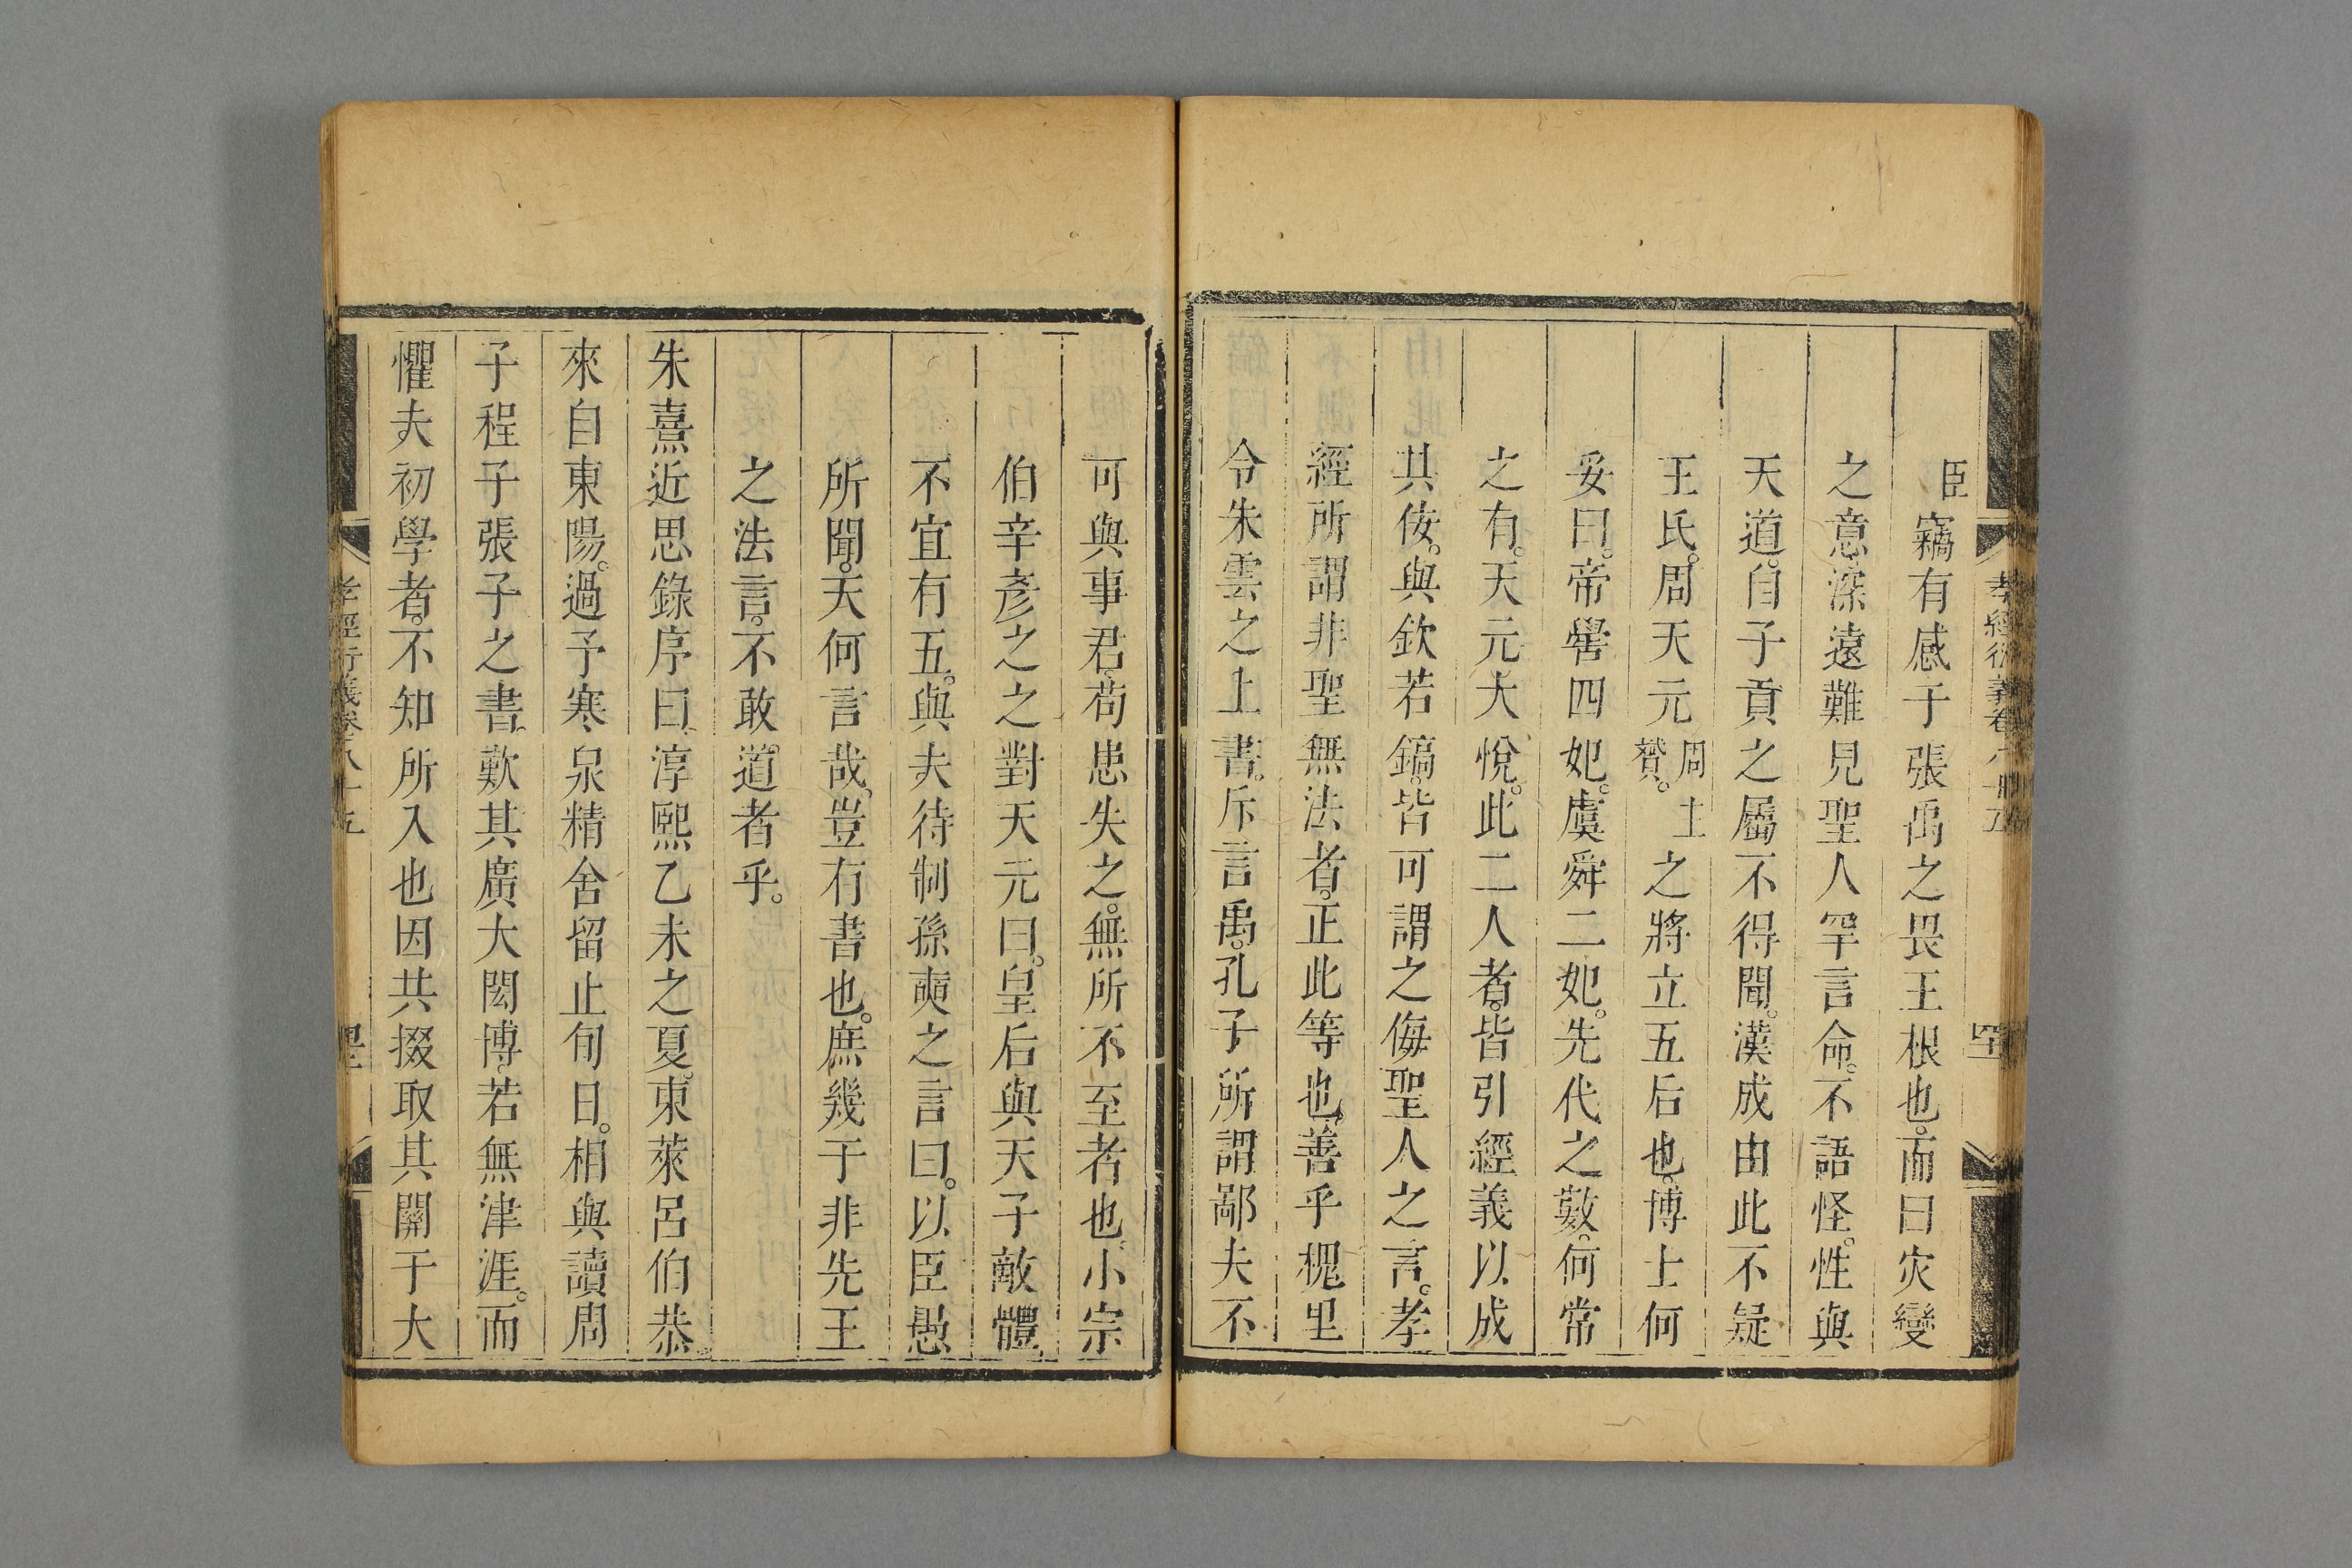 孝經衍義卷八十五
臣竊有感于張禹之畏王根也而曰灾變
之意深遠難見聖人罕言命不語怪性與
天道自子貢之屬不得聞漢成由此不疑
王氏周天元周主贇之將立五后也博士何
妥曰帝嚳四妃虞舜二妃先代之數何常
之有天元大悅此二人者皆引經義以成
其佞與欽若鎬皆可謂之侮聖人之言孝
經所謂非聖無法者正此等也善乎槐里
令朱雲之上書斥言禹孔子所謂鄙夫不
可與事君苟患失之無所不至者也小宗
伯辛彥之之對天元曰皇后與天子敵體
不宜有五與夫待制孫奭之言曰以臣愚
所聞天何言哉豈有書也庶幾于非先王
之法言不敢道者乎
朱熹近思錄序曰淳熙乙未之夏東萊呂伯恭
來自東陽過予寒泉精舍留止旬日相與讀周
子程子張子之書歎其廣大閎博若無津涯而
懼夫初學者不知所入也因共掇取其關于大
孝經衍義卷八十五